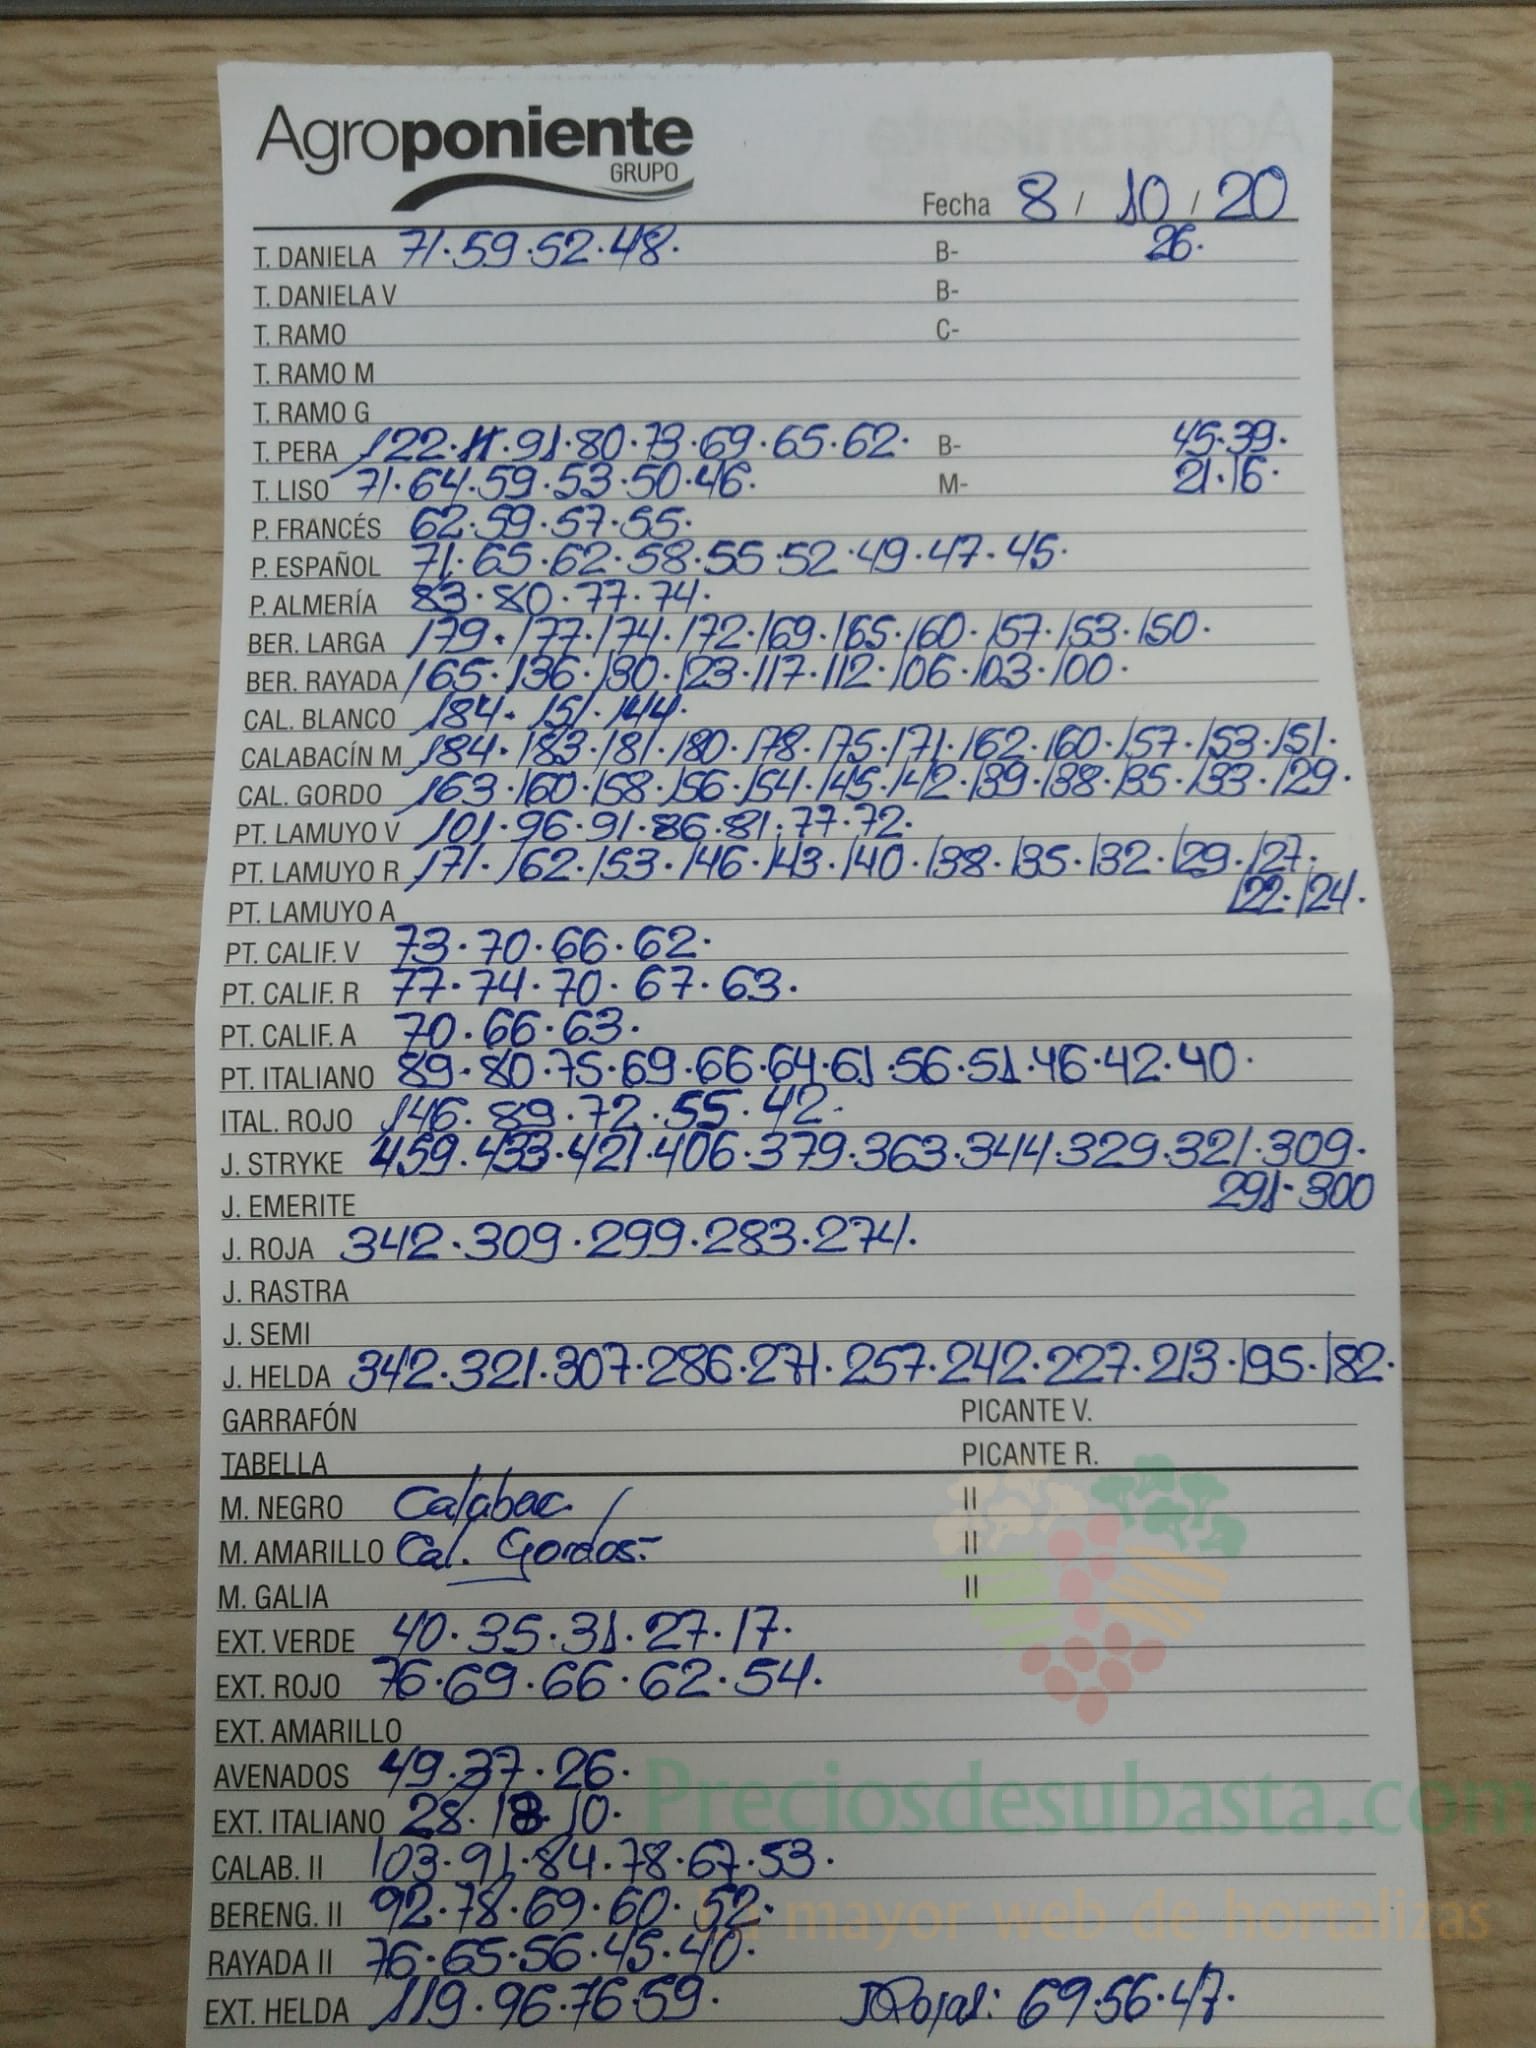 Agroponiente
GRUPO
Fecha 8 / 10 / 20
T. DANIELA 71.59.52.48. B- 26.
T. DANIELA V B-
T. RAMO C-
T. RAMO M
T. RAMO G
T. PERA 122. .91.80.73.69.65.62. B- 45.39.
T. LISO 71.64.59.53.50.46. M- 21.16.
P. FRANCÉS 62.59.57.55.
P. ESPAÑOL 71.65.62.58.55.52.49.47.45.
P. ALMERÍA 83.80.77.74.
BER. LARGA 179.177.174.172.169.165.160.157.153.150.
BER. RAYADA 165.136.130.123.117.112.106.103.100.
CAL. BLANCO 184.151.144.
CALABACÍN M 184.183.181.180.178.175.171.162.160.157.153.151.
CAL. GORDO 163.160.158.156.154.145.142.139.138.135.133.129.
PT. LAMUYO V 101.96.91.86.81.77.72.
PT. LAMUYO R 171.162.153.146.143.140.138.135.132.129.127.
PT. LAMUYO A 122.124.
PT. CALIF. V 73.70.66.62.
PT. CALIF. R 77.74.70.67.63.
PT. CALIF. A 70.66.63.
PT. ITALIANO 89.80.75.69.66.64.61.56.51.46.42.40.
ITAL. ROJO 146.89.72.55.42.
J. STRYKE 459.433.421.406.379.363.344.329.321.309.
J. EMERITE 291.300
J. ROJA 342.309.299.283.274.
J. RASTRA
J. SEMI
J. HELDA 342.321.307.286.271.257.242.227.213.195.182.
GARRAFÓN PICANTE V.
TABELLA PICANTE R.
M. NEGRO Calabac. II
M. AMARILLO Cal. Gordos.- II
M. GALIA II
EXT. VERDE 40.35.31.27.17.
EXT. ROJO 76.69.66.62.54.
EXT. AMARILLO
AVENADOS 49.37.26.
EXT. ITALIANO 28.18.10.
Preciosdesubasta.com
CALAB. II 103.91.84.78.67.53.
BERENG. II 92.78.69.60.52.
La mayor web de hortalizas
RAYADA II 76.65.56.45.40.
EXT. HELDA 119.96.76.59. 69.56.47.